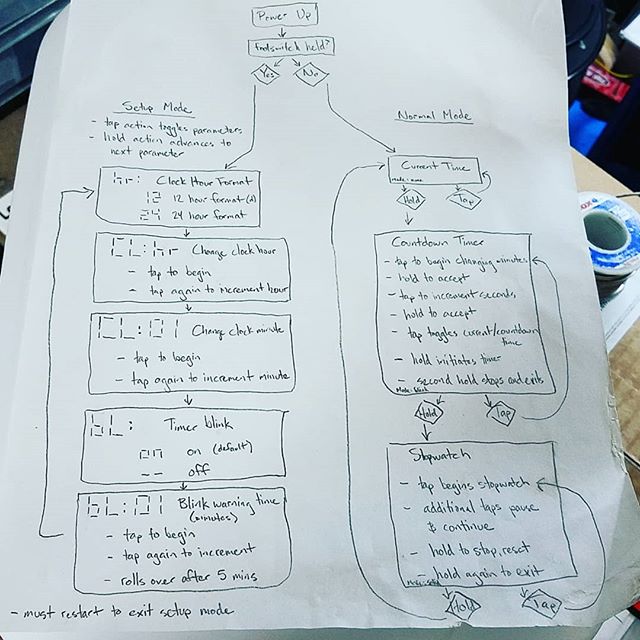 Power Up
footswitch held?
Yes
No
Setup Mode
- tap action toggles parameters
- hold action advances to
next parameter
hr: Clock Hour Format
12 12 hour format (d)
24 24 hour format
CL:hr Change clock hour
- tap to begin
- tap again to increment hour
CL:01 Change clock minute
- tap to begin
- tap again to increment minute
bL: Timer blink
on on (default)
-- off
bL:01 Blink warning time
(minutes)
- tap to begin
- tap again to increment
- rolls over after 5 mins
- must restart to exit setup mode
Normal Mode
Current Time
Hold
Tap
Countdown Timer
- tap to begin changing minutes
- hold to accept
- tap to increment seconds
- hold to accept
- tap toggles current/countdown
time
- hold initiates timer
- second hold stops and exits
Mode: blink
Hold
Tap
Stopwatch
- tap begins stopwatch
- additional taps pause
& continue
- hold to stop, reset
- hold again to exit
Mode: solid
Hold
Tap